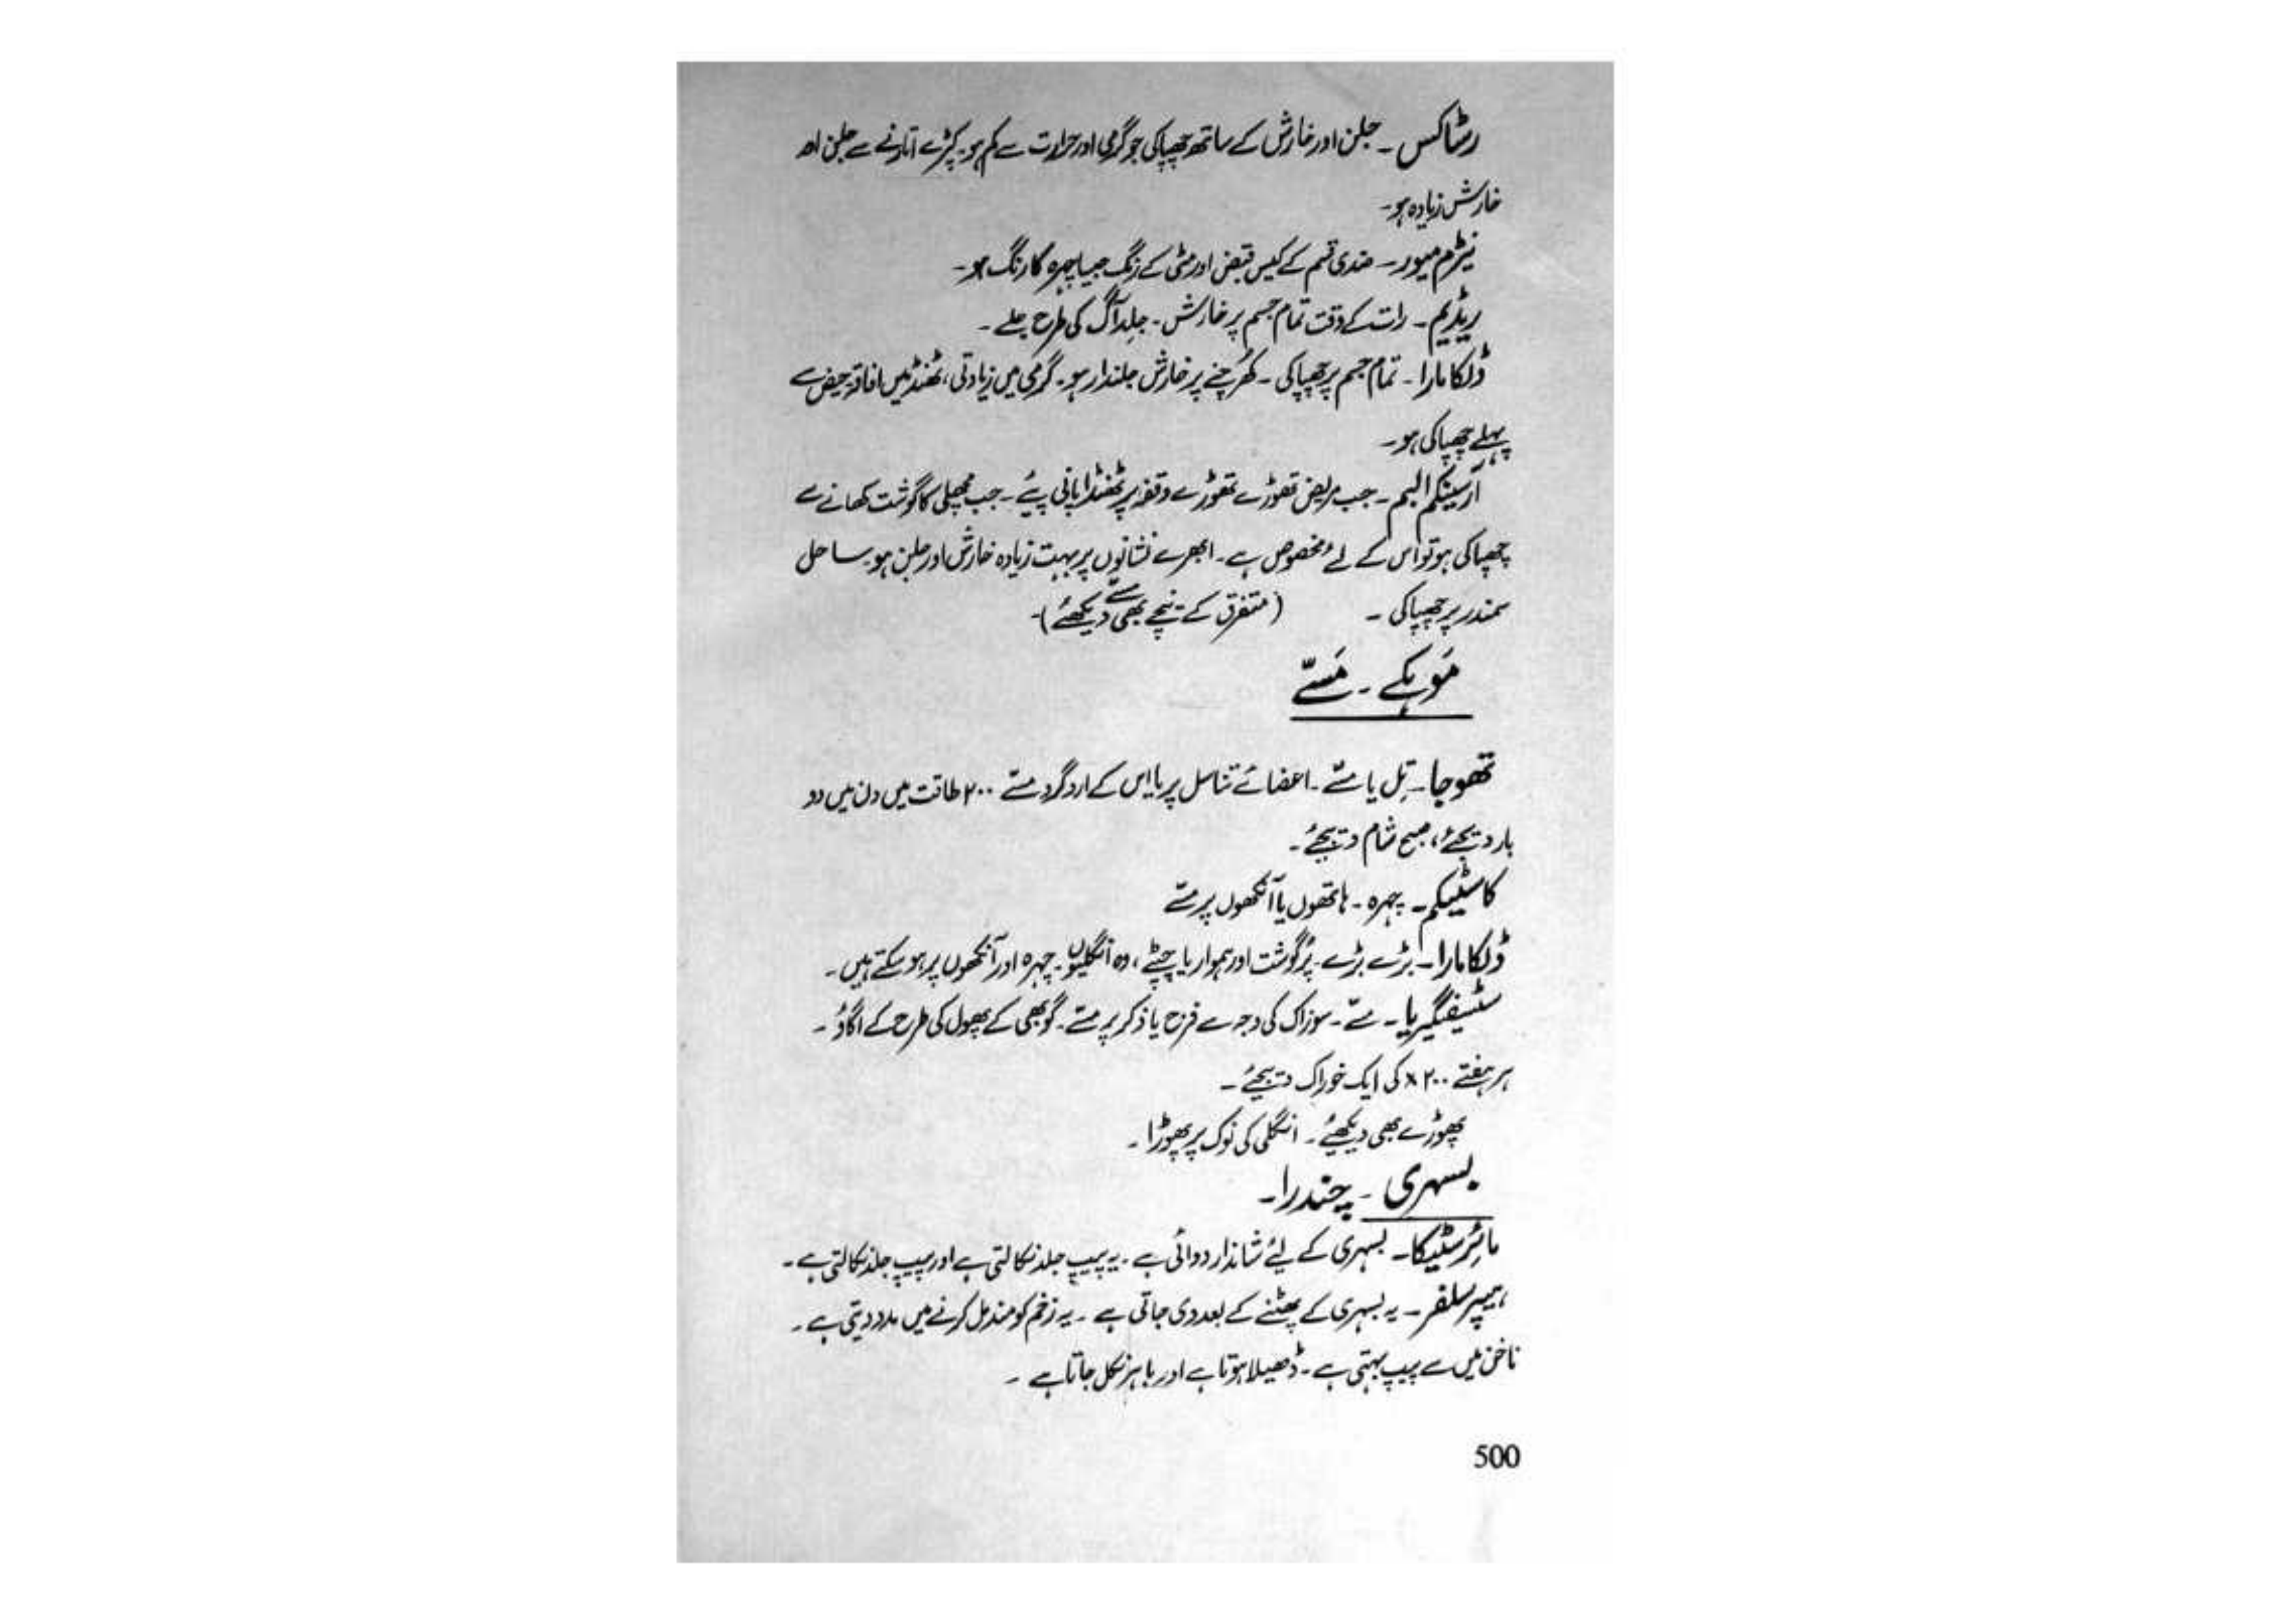 رسٹاکس ۔ جلن اور خارش کے ساتھ چھپاکی جو گرمی اور حرارت سے کم ہو۔ کپڑے اتارنے سے جلن اور
خارش زیادہ ہو۔
نیٹرم میور ۔ ضدی قسم کے کیس قبض اور مٹی کے رنگ جیسا چہرہ کا رنگ ہو۔
ریڈیم ۔ رات کے وقت تمام جسم پر خارش ۔ جلد آگ کی طرح جلے ۔
ڈلکامارا ۔ تمام جسم پر چھپاکی ۔ کھرچنے پر خارش جلندار ہو۔ گرمی میں زیادتی، ٹھنڈ میں افاقہ۔ حیض سے
پہلے چھپاکی ہو۔
آرسینکم البم ۔ جب مریض تھوڑے تھوڑے وقفہ پر ٹھنڈا پانی پئے ۔ جب مچھلی کا گوشت کھانے سے
چھپاکی ہو تو اس کے لئے مخصوص ہے ۔ ابھرے نشانوں پر بہت زیادہ خارش اور جلن ہو۔ ساحل
سمندر پر چھپاکی ۔ (متفرق کے نیچے بھی دیکھئے)۔
مَوہکے ۔ مَسّے
تھوجا ۔ تِل یا مسّے ۔ اعضائے تناسل پر یا اس کے اردگرد مسّے ۲۰۰ طاقت میں دن میں دو
بار دیجئے، صبح شام دیجئے ۔
کاسٹیکم ۔ چہرہ ۔ ہاتھوں یا آنکھوں پر مسّے
ڈلکامارا ۔ بڑے بڑے ۔ پُرگوشت اور ہموار یا چپٹے ، وہ انگلیوں ۔ چہرہ اور آنکھوں پر ہو سکتے ہیں ۔
سٹیفیگیریا ۔ مسّے ۔ سوزاک کی وجہ سے فرج یا ذکر پر مسّے ۔ گوبھی کے پھول کی طرح کے اگاؤ ۔
ہر ہفتے ۲۰۰x کی ایک خوراک دیجئے ۔
پھوڑے بھی دیکھئے ۔ انگلی کی نوک پر پھوڑا ۔
بسہری ۔ چندرا ۔
مائرسٹیکا ۔ بسہری کے لئے شاندار دوائی ہے ۔ یہ پیپ جلد نکالتی ہے اور پیپ جلد نکالتی ہے ۔
ہیپر سلفر ۔ یہ بسہری کے پھٹنے کے بعد دی جاتی ہے ۔ یہ زخم کو مندمل کرنے میں مدد دیتی ہے ۔
ناخن میں سے پیپ بہتی ہے ۔ ڈھیلا ہوتا ہے اور باہر نکل جاتا ہے ۔
500